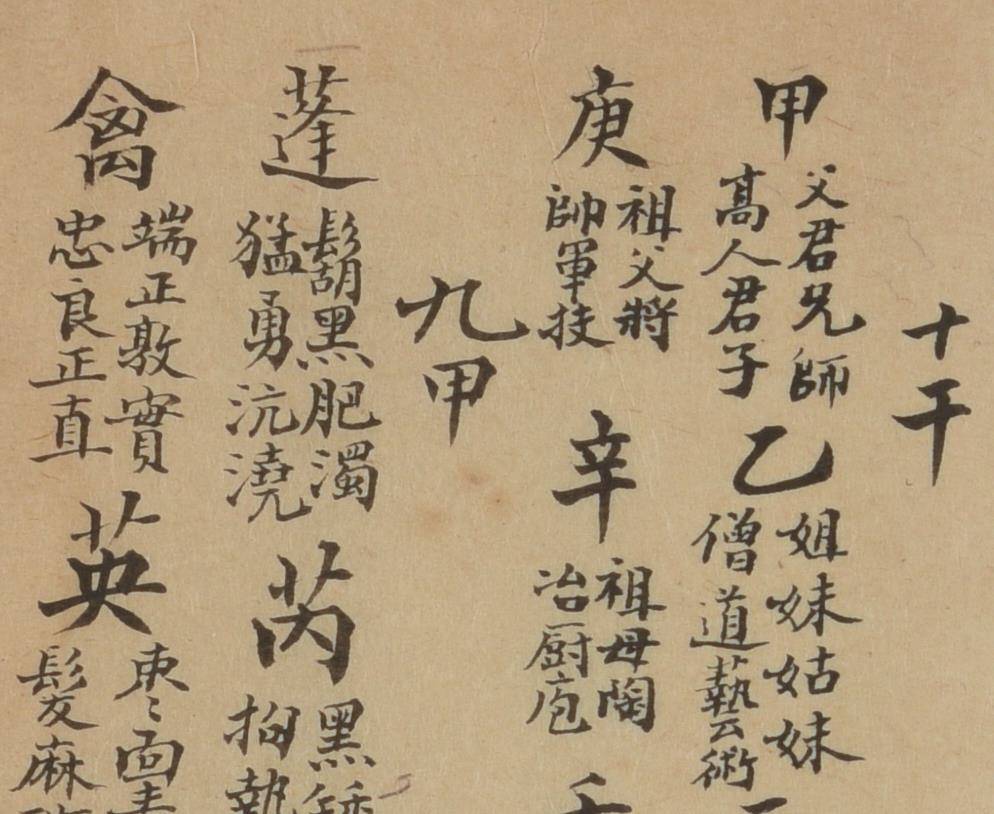 十干
甲 父君兄師
髙人君子
乙 姐妹姑妹
僧道藝術
庚 祖父將
帥軍技
辛 祖母陶
冶厨庖
壬
九甲
蓬 鬍黑肥濁
猛勇沆澆
芮 黑
拘執
禽 端正敦實
忠良正直
英 棗 面
髮麻